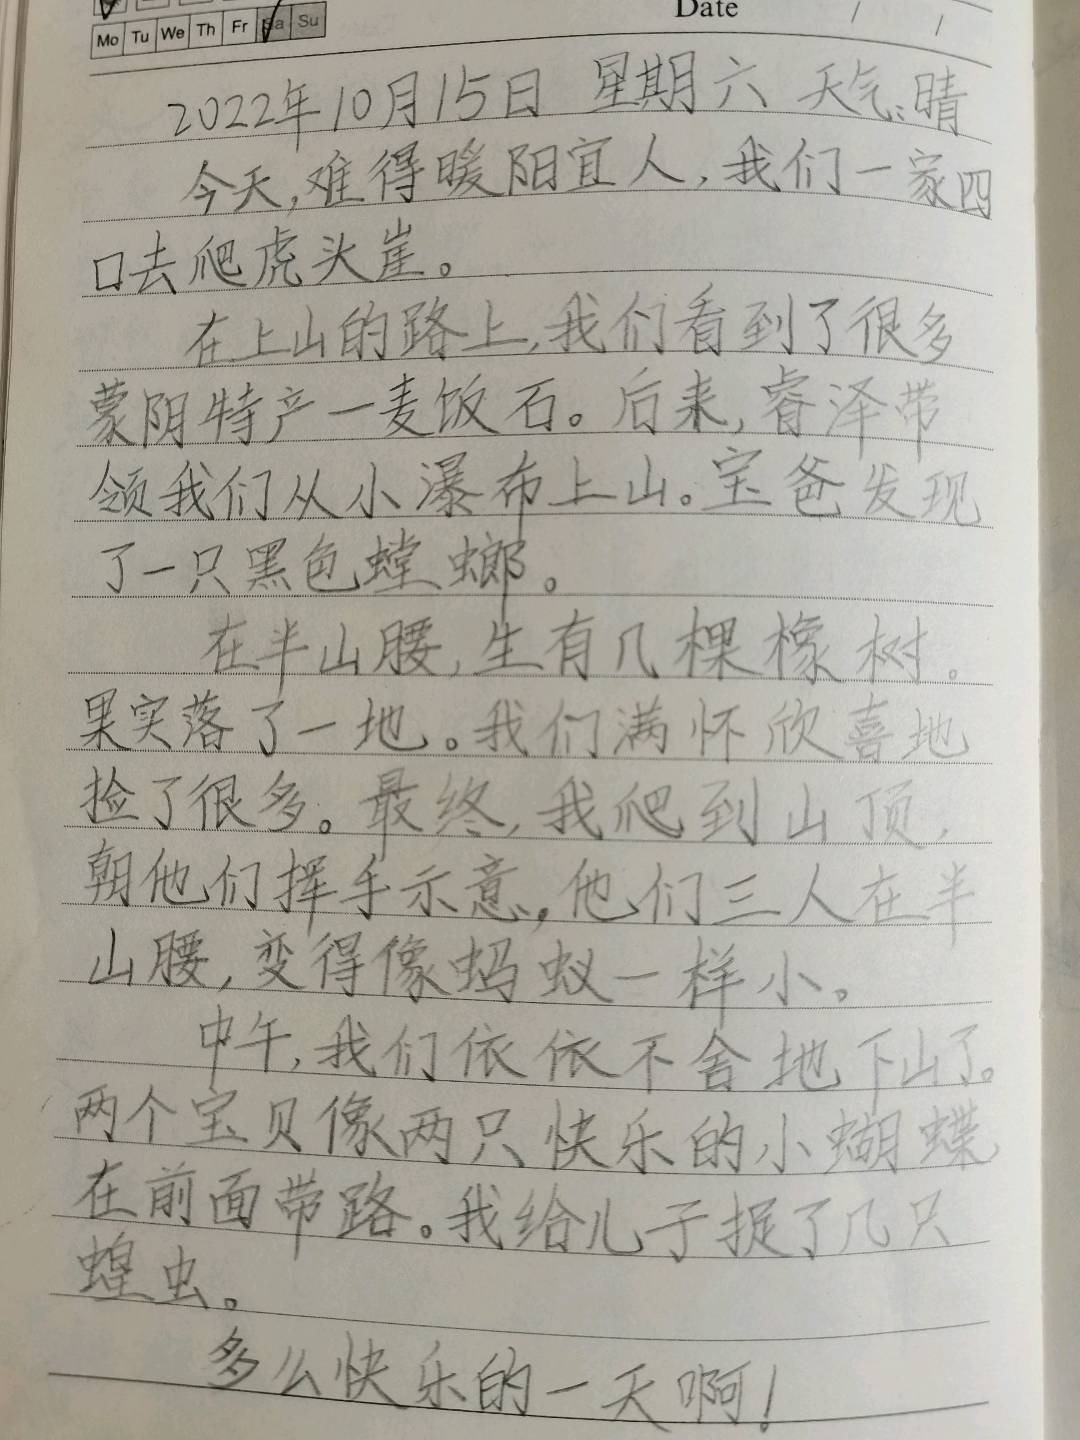 Mo Tu We Th Fr Sa Su
Date / /
2022年10月15日 星期六 天气:晴
今天,难得暖阳宜人,我们一家四
口去爬虎头崖。
在上山的路上,我们看到了很多
蒙阴特产一麦饭石。后来,睿泽带
领我们从小瀑布上山。宝爸发现
了一只黑色螳螂。
在半山腰,生有几棵橡树。
果实落了一地。我们满怀欣喜地
捡了很多。最终,我爬到山顶,
朝他们挥手示意,他们三人在半
山腰,变得像蚂蚁一样小。
中午,我们依依不舍地下山了。
两个宝贝像两只快乐的小蝴蝶,
在前面带路。我给儿子捉了几只
蝗虫。
多么快乐的一天啊!